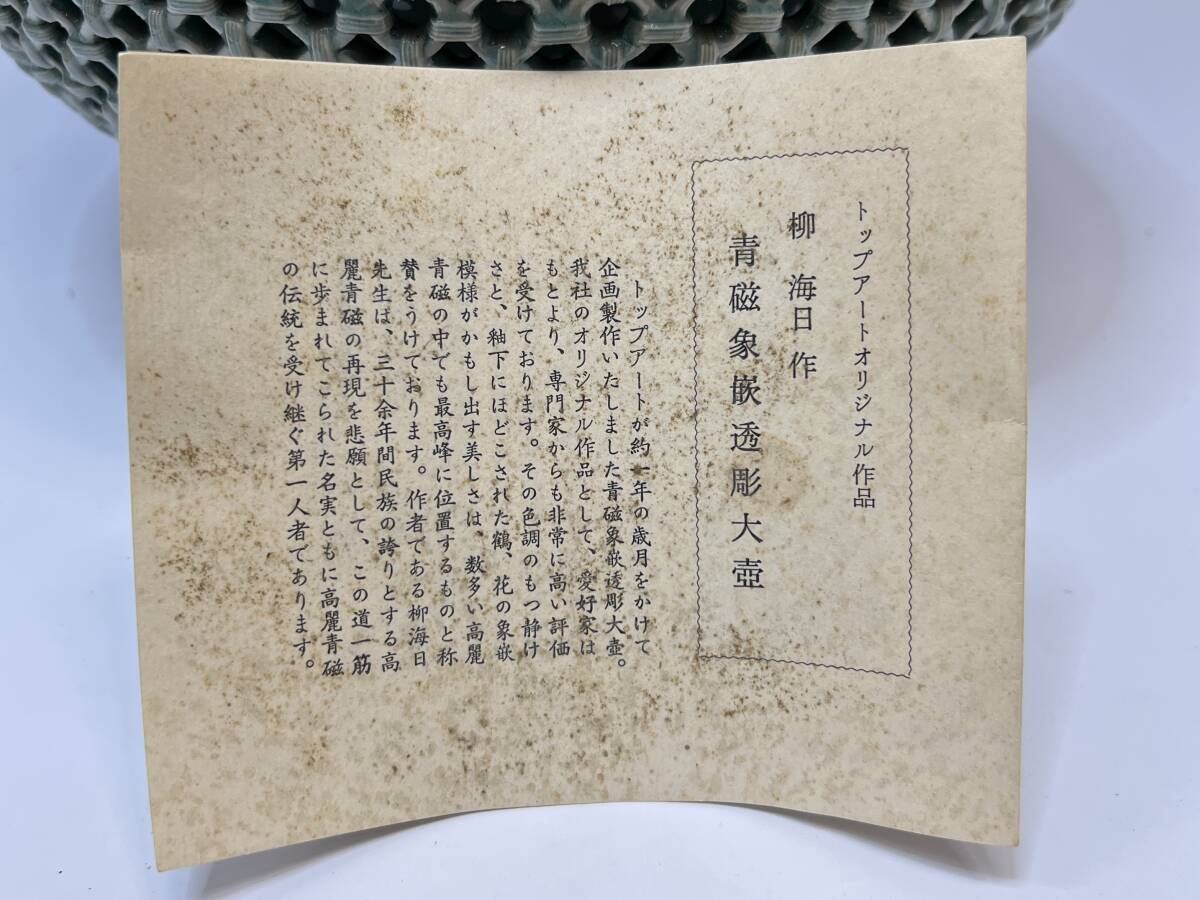 トップアートオリジナル作品
柳海日作
青磁象嵌透彫大壺
トップアートが約一年の歳月をかけて
企画製作いたしました青磁象嵌透彫大壺。
我社のオリジナル作品として、愛好家は
もとより、専門家からも非常に高い評価
を受けております。その色調のもつ静け
さと、釉下にほどこされた鶴、花の象嵌
模様がかもし出す美しさは、数多い高麗
青磁の中でも最高峰に位置するものと称
賛をうけております。作者である柳海日
先生は、三十余年間民族の誇りとする高
麗青磁の再現を悲願として、この道一筋
に歩まれてこられた名実ともに高麗青磁
の伝統を受け継ぐ第一人者であります。